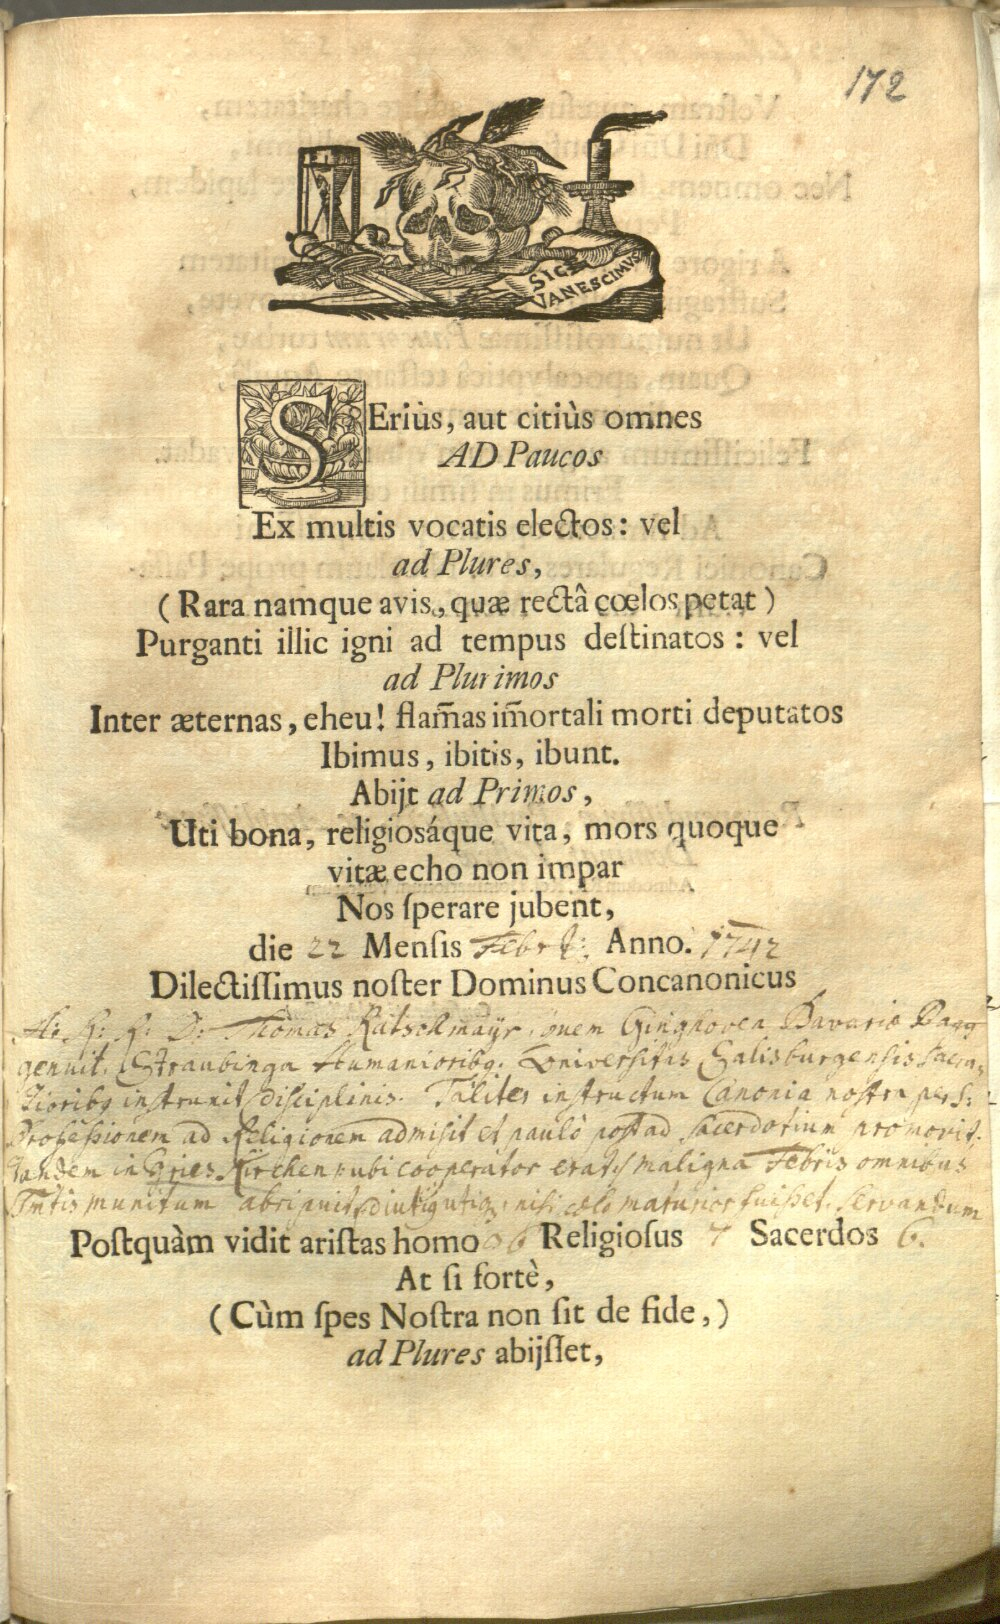 172
SIC
VANESCIMUS
SEriùs, aut citiùs omnes
AD Paucos
Ex multis vocatis electos : vel
ad Plures,
( Rara namque avis, quæ rectâ cœlos petat )
Purganti illic igni ad tempus deſtinatos : vel
ad Plurimos
Inter æternas, eheu! flam̃as im̃ortali morti deputatos
Ibimus, ibitis, ibunt.
Abijt ad Primos,
Uti bona, religiosáque vita, mors quoque
vitæ echo non impar
Nos ſperare jubent,
die 22 Menſis Febr: Anno. 1742
Dilectiſſimus noſter Dominus Concanonicus
A: R: R: D: Thomas Rätschmayr, quem Ginghoven Bavariæ Pagg
genuit, Straubinga Humanioribq, Universitas Salisburgensis sacra-
tioribq instruxit disciplinis. Taliter instructum Canonia nostra per S:
Professionem ad Religionem admisit et paulò post ad sacerdotium promovit.
tandem in Gries-Kirchen ubi cooperator erat, maligna Febris omnibus
munitum abripuit, diutiq utiq, nisi cœlo maturior fuisset, servandum
Poſtquàm vidit ariſtas homo 36 Religioſus 7 Sacerdos 6.
At ſi fortè,
( Cùm ſpes Noſtra non ſit de fide, )
ad Plures abijſſet,